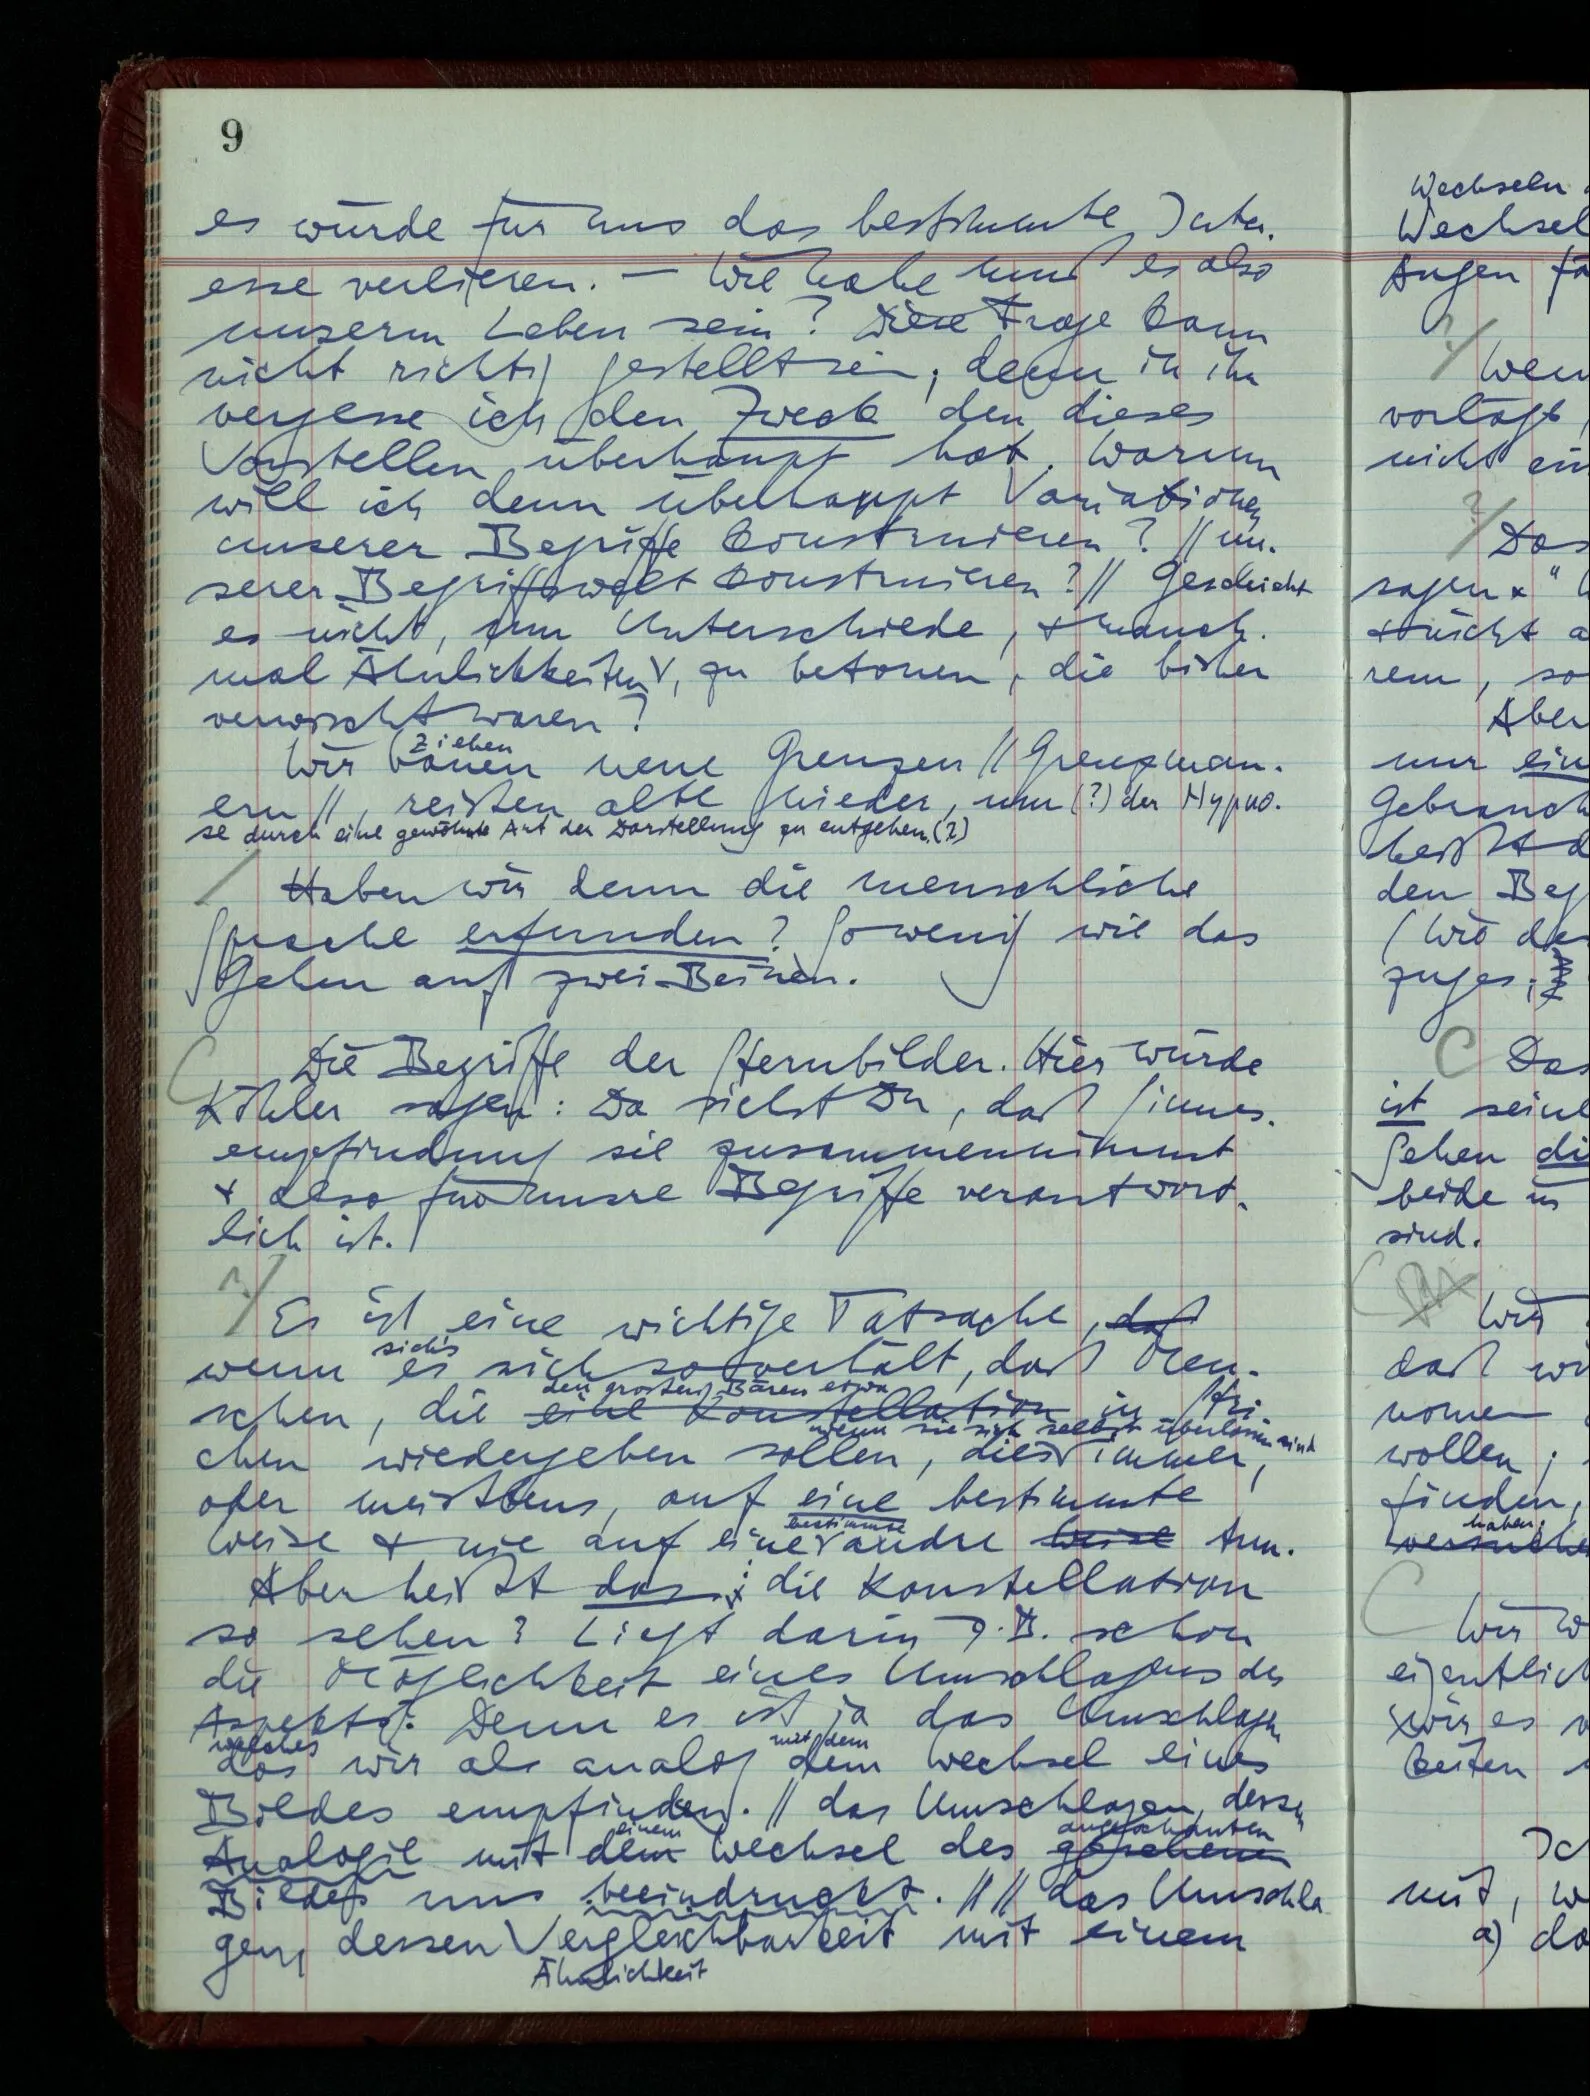 9
es würde für uns das bestimmte Inter-
esse verlieren. — Wie nahe muß es also
unserm Leben sein? Diese Frage kann
nicht richtig gestellt sein, denn in ihr
vergesse ich den Zweck, den dieses
Vorstellen überhaupt hat. Warum
will ich denn überhaupt Variationen
unserer Begriffe konstruieren? // un-
serer Begriffswelt konstruieren? // Geschieht
es nicht, um Unterschiede, & manch-
mal Ähnlichkeiten, zu betonen, die bisher
verwischt waren?
ziehen
Wir bauen neue Grenzen // Grenzmau-
ern //, reißen alte nieder, um (?) der Hypno-
se durch eine gewöhnte Art der Darstellung zu entgehen. (?)
/ Haben wir denn die menschliche
Sprache erfunden? So wenig wie das
Gehen auf zwei Beinen.
C Die Begriffe der Sternbilder. Hier würde
Köhler sagen: Da siehst Du, daß Sinnes-
empfindung sie zusammennimmt
& also für unsre Begriffe verantwort-
lich ist.
?/ Es ist eine wichtige Tatsache, daß
sich's
wenn es sich so verhält, daß Men-
den großen Bären etwa
schen, die eine Konstellation in Stri-
wenn sie sich selbst überlassen sind
chen wiedergeben sollen, dies immer,
oder meistens, auf eine bestimmte
bestimmte
Weise & nie auf eine andre Weise tun.
Aber heißt das: die Konstellation
so sehen? Liegt darin z.B. schon
die Möglichkeit eines Umschlagens des
Aspekts? Denn es ist ja das Umschlagen
welches mit dem
das wir als analog dem Wechsel eines
Bildes empfinden. // das Umschlagen, dessen
einem angeschauten
Analogie mit dem Wechsel des gesehenen
Bildes uns beeindruckt. // // das Umschla
gen, dessen Vergleichbarkeit mit einem
Ähnlichkeit
Wechseln
Wechsel
Augen
?/
Wen
vorlägt,
nicht ein
?/ Das
sagen &
& nicht
rem, so
Aber
nur ein
Gebrauch
heißt
den Beg
(Wo
zuges;
C Das
ist seine
Sehen di
beide in
sind.
C
Wir
daß wi
nomen
wollen;
finden,
haben;
versuche
C
Wir w
eigentlich
wir es
keiten
Ich
mit, w
a) da